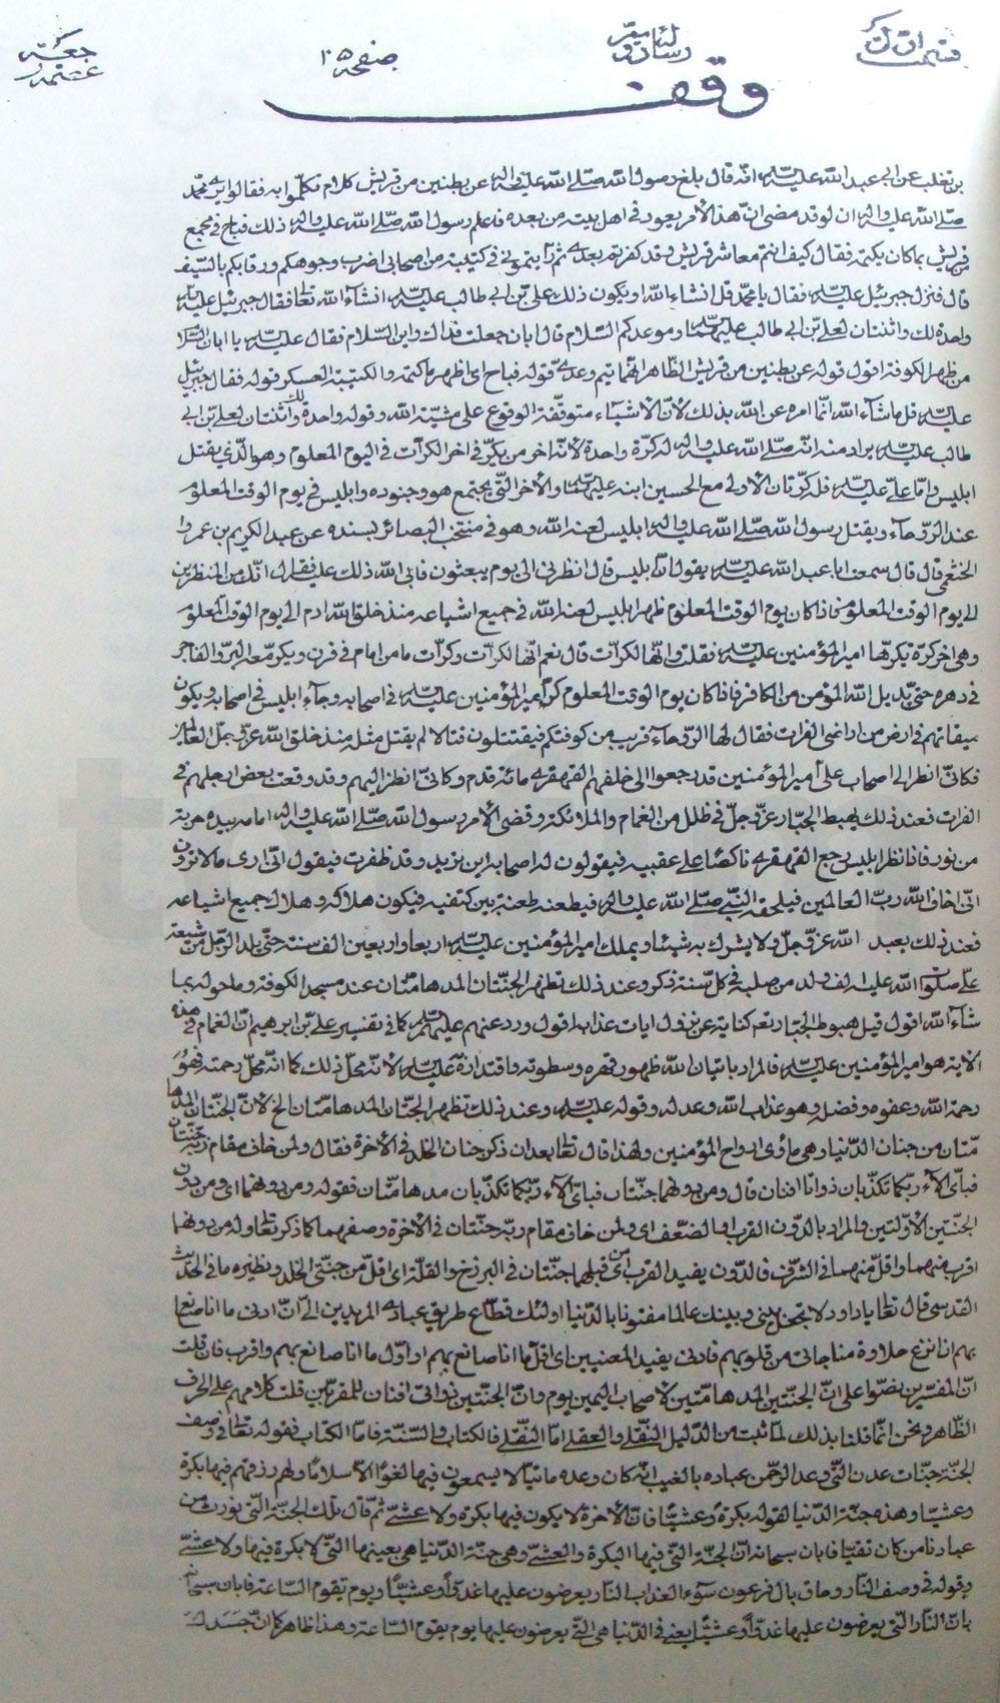 صفحه ١٠٥
وقف
بن تغلب عن ابى عبد الله عليه السلام انه قال بلغ رسول الله صلى الله عليه واله عن بطنين من قريش كلام تكلموا به فقالوا يرى محمد
صلى الله عليه واله ان لو قد مضى ان هذا الأمر يعود فى اهل بيته من بعده فاعلم رسول الله صلى الله عليه واله ذلك فباح فى مجمع
من قريش بما كان يكتمه فقال كيف انتم معاشر قريش وقد كفرتم بعدى ثم رأيتمونى فى كتيبة من اصحابى اضرب وجوهكم ورقابكم بالسيف
قال فنزل جبرئيل عليه السلام فقال يا محمد قل انشاء الله او يكون ذلك على بن ابى طالب عليه السلام انشآء الله تعا فقال جبرئيل عليه السلام
واحدة لك واثنتان لعلى بن ابى طالب عليهما السلام وموعدكم السلام قال ابان جعلت فداك واين السلام فقال عليه السلام يا ابان السلام
من ظهر الكوفة اقول قوله عن بطنين من قريش الظاهر انهما تيم وعدى قوله فباح اى اظهر ما كتمه والكتيبة العسكر قوله فقال جبرئيل
عليه السلام قل ما شآء الله انما امره عن الله بذلك لأن الاشيآء متوقفة الوقوع على مشية الله وقوله واحدة لك واثنتان لعلى بن ابى
طالب عليه السلام يراد منه انه صلى الله عليه واله له كرة واحدة لانه اخر من يكر فى اخر الكرات فى اليوم المعلوم وهو الذى يقتل
ابليس واما على عليه السلام فله كرتان الاولى مع الحسين ابنه عليهما السلام والأخر التى يجتمع هو وجنوده وابليس فى يوم الوقت المعلوم
عند الروحآء ويقتل رسول الله صلى الله عليه واله ابليس لعنه الله وهو فى منتخب البصائر بسنده عن عبد الكريم بن عمرو
الخثعمى قال قال سمعت ابا عبد الله عليه السلام يقول ان ابليس قال انظرنى الى يوم يبعثون فابى الله ذلك عليه فقال انك من المنظرين
الى يوم الوقت المعلوم فاذا كان يوم الوقت المعلوم ظهر ابليس لعنه الله فى جميع اشياعه منذ خلق الله ادم الى يوم الوقت المعلوم
وهى اخر كرة يكرها امير المؤمنين عليه السلام فقلت وانها لكرات قال نعم انها لكرات وكرات ما من امام فى قرن ويكر معه البر والفاجر
فى دهره حتى يديل الله المؤمن من الكافر فاذا كان يوم الوقت المعلوم كر امير المؤمنين عليه السلام فى اصحابه وجآء ابليس فى اصحابه ويكون
ميقاتهم فى ارض من اراضى الفرات فقال لها الروحآء قريب من كوفتكم فيقتتلون قتالا لم يقتل مثله منذ خلق الله عز وجل العالمين
فكانى انظر الى اصحاب على امير المؤمنين قد رجعوا الى خلفهم القهقرى مائة قدم وكانى انظر اليهم وقد وقعت بعض ارجلهم فى
الفرات فعند ذلك يهبط الجبار عز وجل فى ظلل من الغمام والملائكة وقضى الأمر رسول الله صلى الله عليه واله امامه بيده حربة
من نور فاذا نظر ابليس رجع القهقرى ناكصا على عقبيه فيقولون له اصحابه اين تريد وقد ظفرت فيقول انى ارى ما لا ترون
انى اخاف الله رب العالمين فيلحقه النبى صلى الله عليه واله فيطعنه طعنة بين كتفيه فيكون هلاكه وهلاك جميع اشياعه
فعند ذلك يعبد الله عز وجل ولا يشرك به شيئا ويملك امير المؤمنين عليه السلام اربعا واربعين الف سنة حتى يلد الرجل من شيعة
على صلوات الله عليه الف ولد من صلبه فى كل سنة ذكر وعند ذلك تظهر الجنتان المدهامتان عند مسجد الكوفة وما حوله بما
شآء الله اقول قيل هبوط الجبار تعم كناية عن نزول ايات عذابه اقول ورد عنهم عليهم السلام كما فى تفسير على بن ابرهيم ان الغمام فى هذه
الاية هو امير المؤمنين عليه السلام فالمراد باتيان الله ظهور قهره وسطوته واقتداره عليه السلام لانه محل ذلك كما انه محل رحمته فهو
رحمة الله وعفوه وفضله وهو عذاب الله وعدله وقوله عليه السلام وعند ذلك تظهر الجنتان المدهامتان الخ لان الجنتان المدها
متان من جنان الدنيا وهى مأوى ارواح المؤمنين ولهذا قال تعا بعد ان ذكر جنان الخلد فى الأخرة فقال ولمن خاف مقام ربه جنتان
فباى الآء ربكما تكذبان ذواتا افنان قال ومن دونهما جنتان فباى الآء ربكما تكذبان مدهامتان فقوله ومن دونهما اى ومن دون
الجنتين الأولتين والمراد بالدون القرب او الضعف اى ولمن خاف مقام ربه جنتان فى الأخرة وصفهما كما ذكر تعا وله من دونهما
اقرب منهما واقل منهما فى الشرف فالدون يفيد القرب اى من قبلهما جنتان فى البرزخ والقلة اى اقل من جنتى الخلد ونظيره ما فى الحديث
القدسى قال تعا يا داود لا تجعل بينى وبينك عالما مفتونا بالدنيا اولئك قطاع طريق عبادى المريدين الى ان ادنى ما انا صانع
بهم ان انزع حلاوة مناجاتى من قلوبهم فادنى يفيد المعنيين اى اقل ما انا صانع بهم او اول ما انا صانع بهم واقرب فان قلت
ان المفسرين نصوا على ان الجنتين المدهامتين لاصحاب اليمين يوم وان الجنتين ذواتى افنان للمقربين قلت كلامهم على الحرف
الظاهر ونحن انما قلنا بذلك لما ثبت من الدليل النقلى والعقلى اما النقلى فالكتاب والسنة فاما الكتاب فقوله تعا فى وصف
الجنة جنات عدن التى وعد الرحمن عباده بالغيب انه كان وعده ماتيا لا يسمعون فيها لغوا الا سلاما ولهم رزقهم فيها بكرة
وعشيا وهذه جنة الدنيا لقوله بكرة وعشيا فان الأخرة لا يكون فيها بكرة ولا عشى ثم قال تلك الجنة التى نورث من
عبادنا من كان تقيا فابان سبحانه ان الجنة التى فيها البكرة والعشى وهى جنة الدنيا هى بعينها التى لا بكرة فيها ولا عشى
وقوله فى وصف النار وحاق بال فرعون سوء العذاب النار يعرضون عليها غدوا وعشيا ويوم تقوم الساعة فابان سبحانه
بان النار التى يعرضون عليها غدوا وعشيا يعنى فى الدنيا هى التى يعرضون عليها يوم يقوم الساعة وهذا ظاهر كما ان جسدك